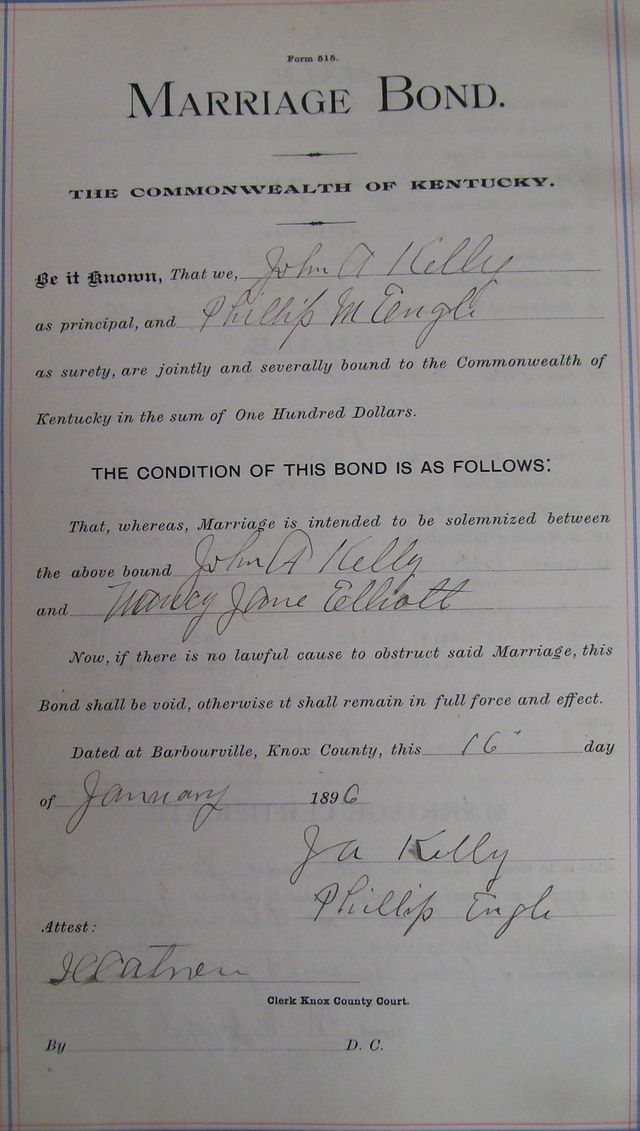 Form 515.
MARRIAGE BOND.
THE COMMONWEALTH OF KENTUCKY.
Be it Known, That we, John A Kelly
as principal, and Phillip M Engle
as surety, are jointly and severally bound to the Commonwealth of
Kentucky in the sum of One Hundred Dollars.
THE CONDITION OF THIS BOND IS AS FOLLOWS:
That, whereas, Marriage is intended to be solemnized between
the above bound John A Kelly
and Nancy Jane Elliott
Now, if there is no lawful cause to obstruct said Marriage, this
Bond shall be void, otherwise it shall remain in full force and effect.
Dated at Barbourville, Knox County, this 16" day
of January 1896
J A Kelly
Phillip Engle
Attest:
Clerk Knox County Court.
By D. C.